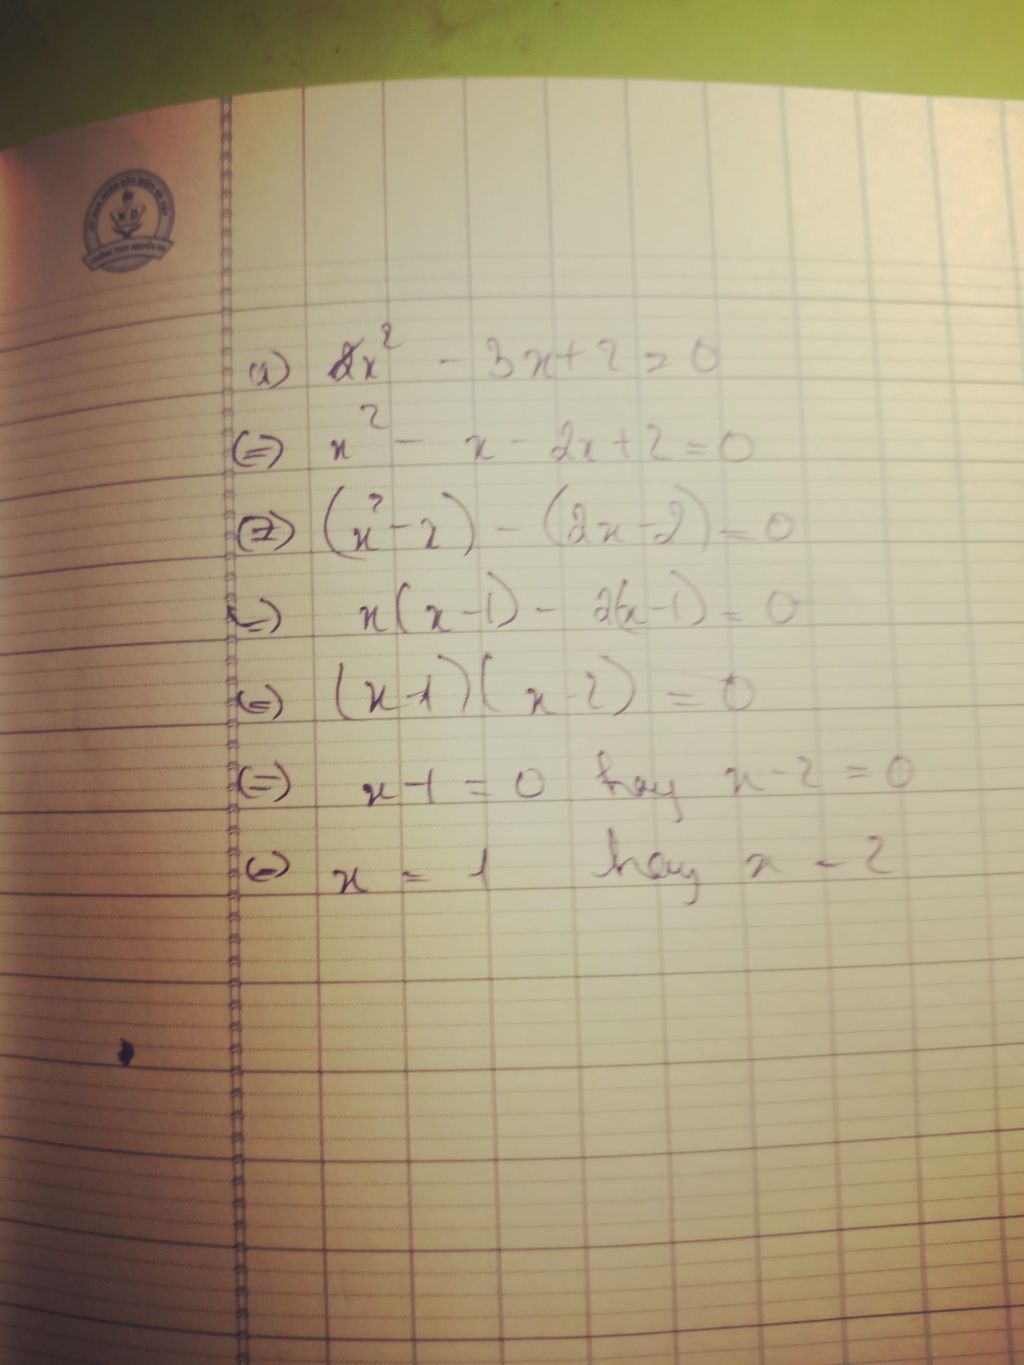 a) x² - 3x + 2 = 0
(=) x² - x - 2x + 2 = 0
(=) (x² - x) - (2x - 2) = 0
(=) x(x - 1) - 2(x - 1) = 0
(=) (x - 1)(x - 2) = 0
(=) x - 1 = 0 hay x - 2 = 0
(=) x = 1 hay x = 2